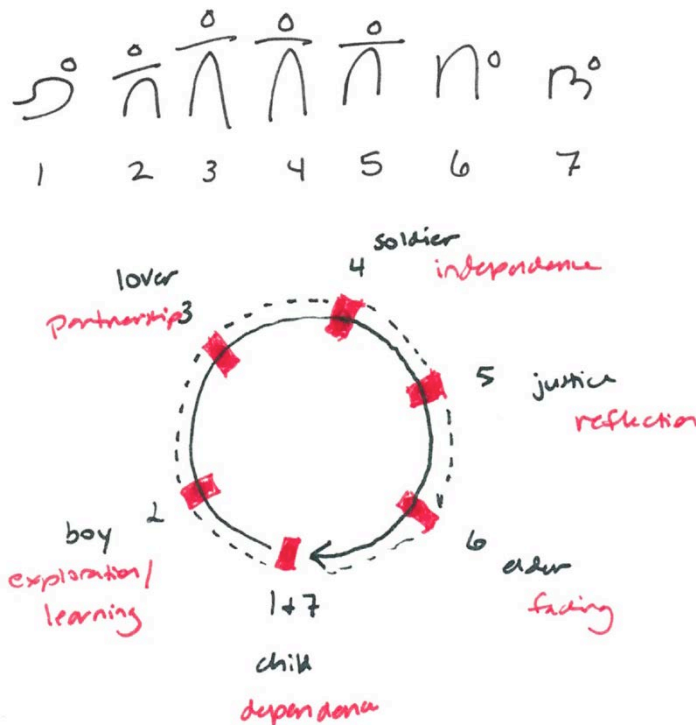 1 2 3 4 5 6 7
soldier
4
independence
lover
partnership 3
5 justice
reflection
2
boy
exploration/
learning
6
elder
fading
1+7
child
dependence